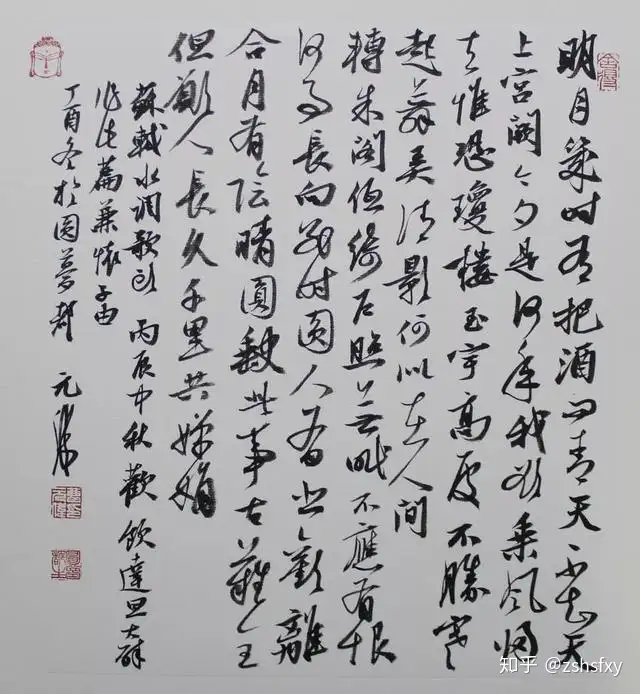 明月幾时有把酒问青天不知天
上宫阙今夕是何年我欲乘风归
去惟恐瓊樓玉宇高處不勝寒
起舞弄清影何似在人间
轉朱阁低绮户照无眠不應有恨
何事長向别时圆人有悲歡離
合月有陰晴圓缺此事古難全
但願人長久千里共嬋娟
蘇軾水调歌头 丙辰中秋歡飲達旦大醉
作此篇兼懷子由
丁酉冬於圆夢 元
知乎 @zshsfxy